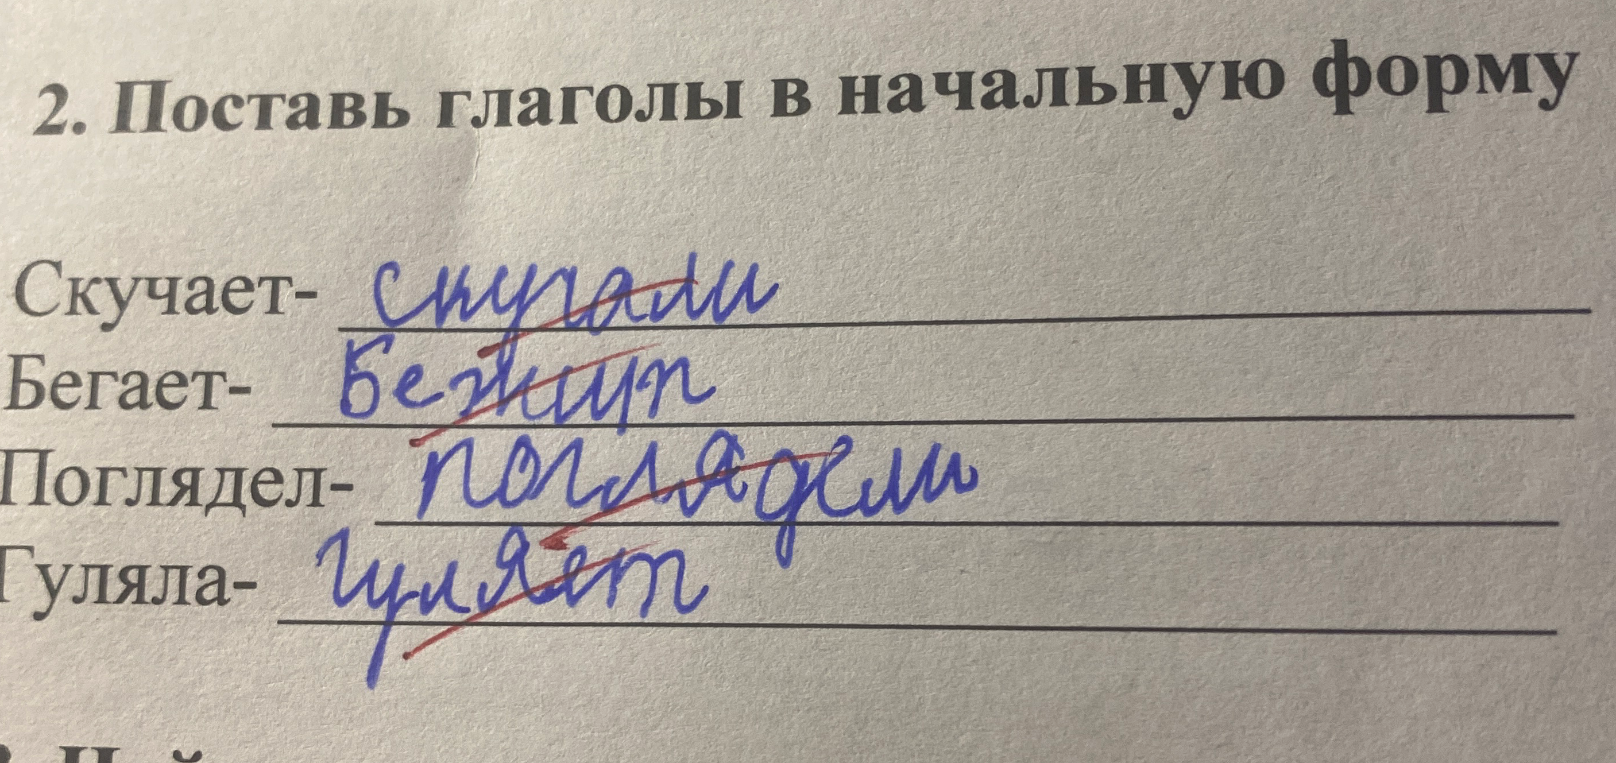 2. Поставь глаголы в начальную форму
Скучает- скучали
Бегает- Бежит
Поглядел- поглядели
Гуляла- Гуляет